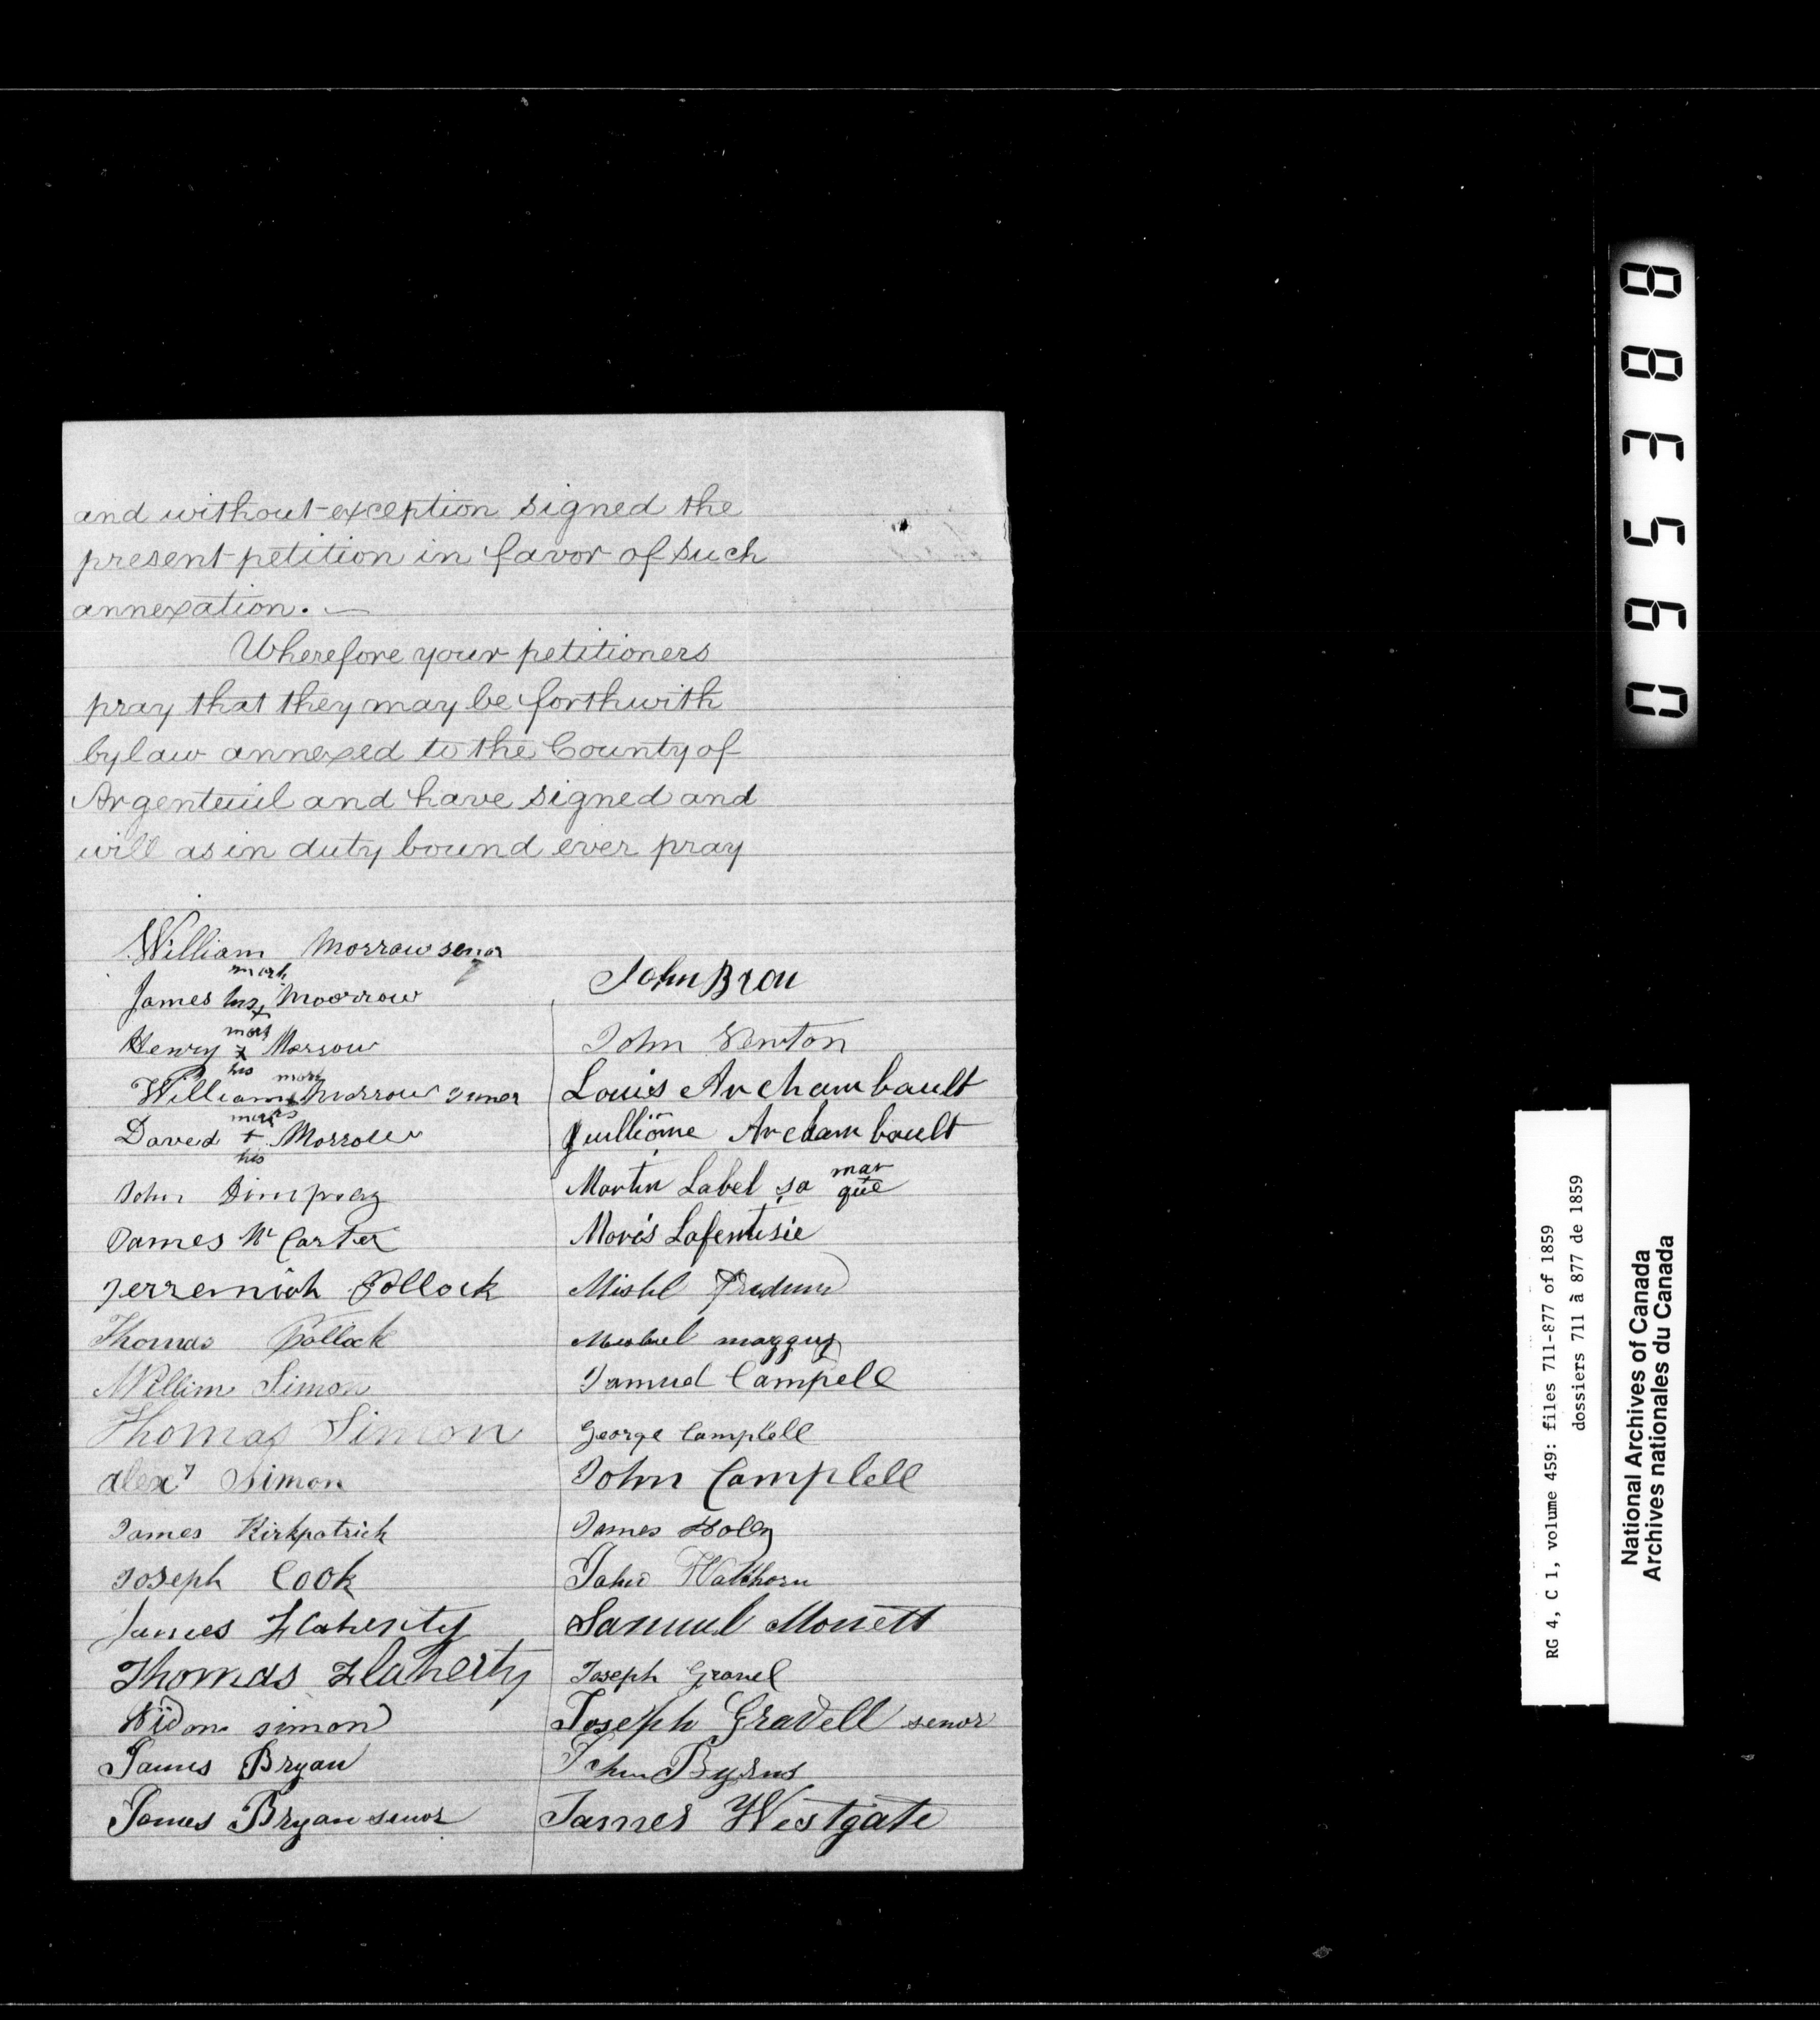 and without exception signed the
present petition in favor of such
annexation. —
Wherefore your petitioners
pray that they may be forthwith
by law annexed to the County of
Argenteuil and have signed and
will as in duty bound ever pray
William Morrow senor
mark
James his x Moorrow
mark
Henry x Morrow
his mark
William x Morrow Juner
mark
David + Morrow
his
John
James Mc Carter
Jerremiah Pollock
Thomas Pollock
Willim Simon
Thomas Simon
Alexr Simon
James Kirkpatrick
Joseph Cook
James Flaherity
Thomas Flaherty
Widow simon
James Bryan
James Bryan senor
John Brou
John Newton
Louis Archambault
Archambault
mar
Martin Label sa que
Moris
Mishl
Samuel Campell
George Campbell
John Campbell
James
John
Samuel Monett
Joseph Gravel
Joseph Gravell senor
John Byrns
James Westgate
095388
RG 4, C 1, volume 459: files 711-877 of 1859
dossiers 711 à 877 de 1859
National Archives of Canada
Archives nationales du Canada